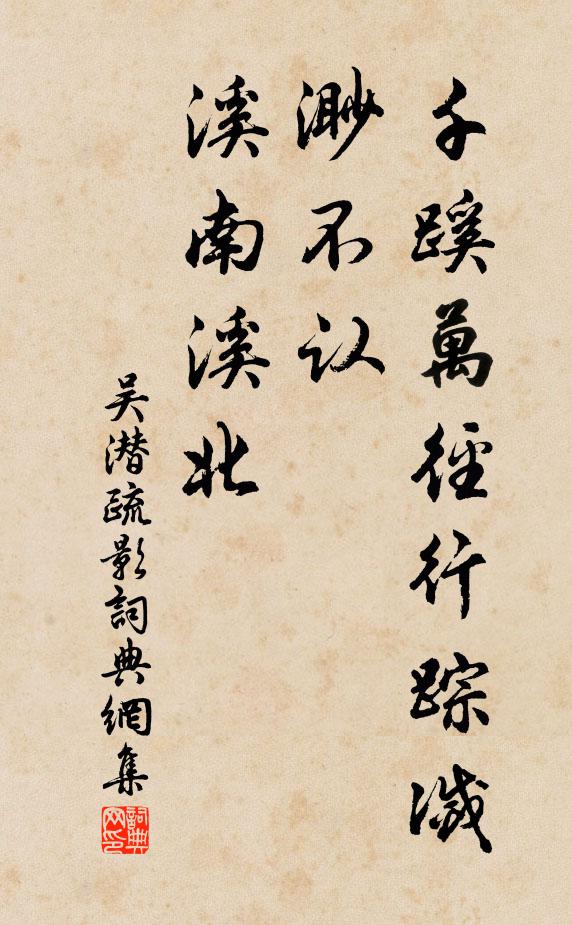 千蹊萬徑行踪滅
渺不认
溪南溪北
吴潜疏影詞典網集
詞典網印